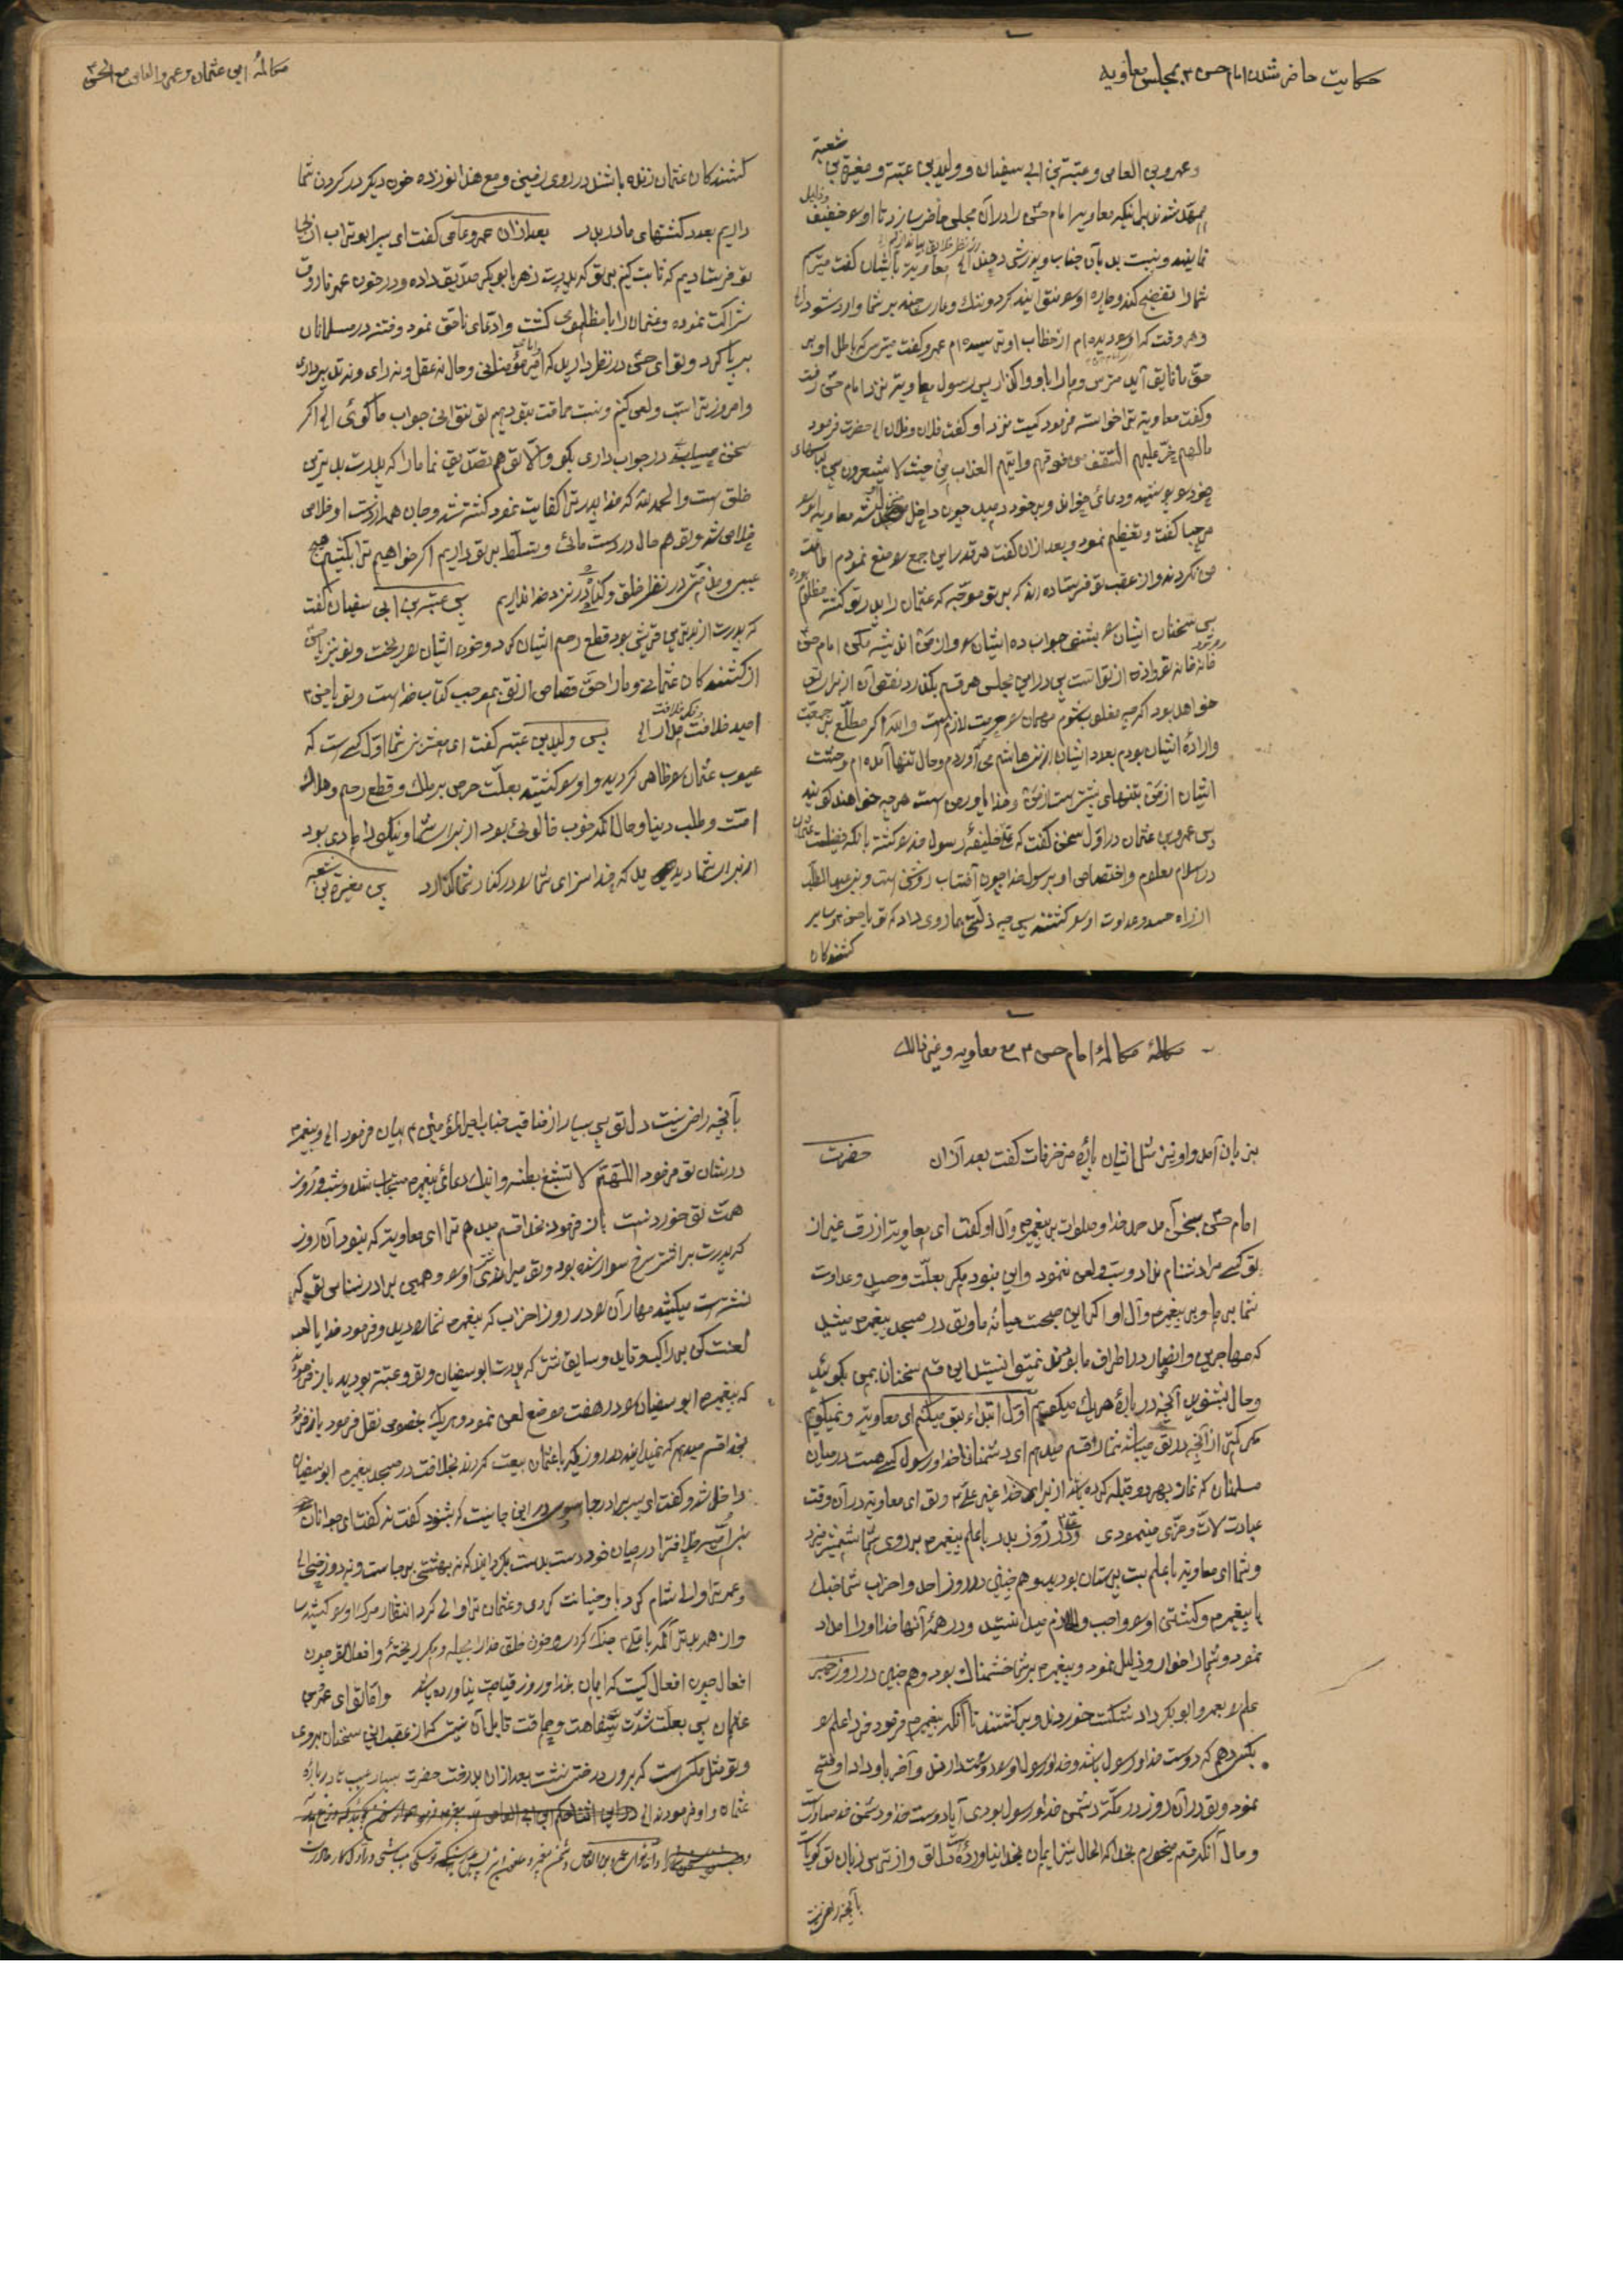 حکایت حاضر شدن امام حسن ۳ بمجلس معاویه
شعبة
وعمرو بن العاص وعتبة بن ابی سفیان و ولید بن عتبه ومغیرة بن
شدند برانیکه معاویه امام حسن را در آن مجلس حاضر سازد تا او را خفیف
وذلیل
نمایند و نسبت بد بآن جناب و پدرش دهند الی معاویه بایشان گفت میترسم
شما را تفضیح کند و چاره او را نتوانید کرد و ننگ و عار بر شما وارد شود
و هر وقت که او را دیده ام از خطاب او ترسیده ام عمرو گفت میترسی که باطل او بر
حق ما فایق آید مترس و ما را باو واگذار پس رسول معاویه نزد امام حسن رفت
وگفت معاویه ترا خواسته فرمود کیست نزد او گفت فلان و فلان الی حضرت فرمود
مالهم خر علیهم السقف من فوقهم واتیهم العذاب من حیث لا یشعرون پس لباسهای
خود را پوشید و دعائی خواند و بر خود دمید چون داخل شد معاویه او را
مرحبا گفت و تعظیم نمود و بعد از آن گفت هر قدر این جمع را منع نمودم اطاعت
من نکردند و از عقب تو فرستاده اند که بر تو موجه که عثمان را پدر تو کشته مظلوم
پس سخنان ایشان را بشنو جواب ده ایشان را و از من اندیشه مکن امام حسن
فرمود
خانه خانه تو و اذن از تو است پس در این مجلس هر قسم بگذرد نقص آن از برای تو
خواهد بود اگر چه مغلوب شوم مهمان را حرمت لازم است والله اگر مطلع بر جمعیت
واراده ایشان بودم بعدد ایشان از بنی هاشم می آوردم و حال تنها آمده ام و وحشت
ایشان از من بتنهائی بیشتر است از من و خدا یاور من است هر چه خواهند گویند
پس عمرو بن عثمان در اول سخن گفت که خلیفه رسول خدا را کشته با آنکه فضیلت عثمان
در اسلام معلوم و اختصاص او برسول خدا چون آفتاب روشن است و بنی عبد المطلب
از راه حسد و عداوت او را کشتند پس چه ذلتی بما روی داد که تو با حسن و سایر
کشندکان
مکالمه ابن عثمان و عمرو العاص مع الحسن
کشندکان عثمان زنده باشند در روی زمین و مع هذا نوزده خون دیگر در کردن شما
داریم بعدد کشتهای ما در بدر بعد از آن عمرو عاص گفت ای پسر ابوتراب از پی
تو فرستادیم که ثابت کنیم بر تو که پدرت زهر بابوبکر صدیق داده و در خون عمر فاروق
شراکت نموده و عثمان را با مظلومی کشت و ادعای ناحق نمود و فتنه در مسلمانان
بر پا کرد و تو ای حسن در نظر داری که امیر مؤمنانی و حال نه عقل و نه رای و نه تدبیر داری
و امروز ترا سب و لعن کنیم و نسبت حماقت بتو دهیم تو نتوانی جواب ما گوئی الی اگر
سخن در جواب داری بگو و الا تو هم تصدیق نما ما را که پدرت بدترین
خلق است والحمد لله که خدا پدر ترا کفایت نمود کشته شد و جان همه از دست او خلاص
شد و تو هم حال در دست مائی و تسلط بر تو داریم اگر خواهیم ترا بکشیم هیچ
عیبی و در نظر خلق و کناه در نزد خدا نداریم پس عتبة بن ابی سفیان گفت
که پدرت از بدترین قریش بود قطع رحم ایشان کرد و خون ایشان را ریخت و تو نیز
از کشندکان عثمانی و ما را حق قصاص از تو بموجب کتاب خدا است و تو با حسن
امید خلافت داری الی پس ولید بن عتبه گفت ای معشر نی شما اول کسی است که
عیوب عثمان را ظاهر کردید و او را کشتید بعلت حرص بر ملک و قطع رحم و هلاک
امت و طلب دنیا و حال آنکه خوب خالوئی بود از برای شما و نیکو دامادی بود
از برای شما دیدید که خدا سزای شما را در کنار شما گذارد پس مغیرة بن شعبه
مکالمه امام حسن ۳ مع معاویه وغیر ذالک
بزبان آمد و او نیز مثل ایشان پاره مزخرفات گفت بعد از آن حضرت
امام حسن بسخن آمد حمد خدا و صلوات بر پیغمبر و آل او گفت ای معاویه ازرق غیر از
تو کسی مرا دشنام نداد و سب و لعن ننمود و این نبود مگر بعلت و حسد و عداوت
شما بر ما و بر پیغمبر و آل او اگر این صحبت میانه ما و تو در مسجد پیغمبر میشد
که مهاجرین و انصار در اطراف ما بودند نمیتوانستید این قسم سخنان بمن بگوئید
و حال بشنوید آنچه در باره هر یک میگویم اول ابتداء بتو میکنم ای معاویه و نمیگویم
مگر کمتر از آنچه در تو میباشد شما را قسم میدهم ای دشمنان خدا و رسول کسی هست در میان
مسلمانان که نماز بهر دو قبله کرده باشد از برای خدا غیر علی ۳ و تو ای معاویه در آن وقت
عبادت لات و عزی مینمودی و در روز بدر با علم پیغمبر ۳ بر روی شما شمشیر میزد
و شما ای معاویه با علم بت پرستان بودید و هم چنین در روز احد و احزاب شما جنک
با پیغمبر و کشتن او را واجب و لازم میدانستید و در همه آنها خدا او را امداد
نمود و شما را خوار و ذلیل نمود و پیغمبر بر شما خشمناک بود و هم چنین در روز خیبر
علم را بعمر و ابوبکر داد شکست خوردند و برگشتند تا آنکه پیغمبر ۳ فرمود فردا علم را
بکسی دهم که دوست خدا و رسول باشد و خدا و رسول او را دوست دارند و آخر باو داد و فتح
نمود و تو در آن روز در مکه دشمن خدا و رسول بودی آیا دوست خدا و دشمن خدا مساویست
و حال آنکه قسم میخورم بخدا که الحال نیز ایمان بخدا نیاورده دل تو و از ترس زبان تو گویا است
بآنچه راضی نیست
بآنچه راضی نیست دل تو پس بسیار از مناقب جناب امیر المؤمنین ۳ بیان فرمود الی و پیغمبر ۳
در شان تو فرمود اللهم لا تشبع بطنه و اینک دعای پیغمبر مستجاب شده و شب و روز
همت تو خوردنست باز فرمود بخدا قسم میدهم ترا ای معاویه که نبود آن روز
که پدرت بر اشتر سرخ سوار شده بود و تو میراندی او را و همین برادر شناس تو که
نشسته است میکشید مهار آن را در روز احزاب که پیغمبر شما را دید و فرمود خدایا
لعنت کن بر راکب و قاید و سایق شتر که پدرت ابوسفیان و تو و عتبه بودید باز فرمود
که پیغمبر ۳ ابوسفیان را در هفت موضع لعن نمود و هر یک بخصوص نقل فرمود باز فرمود
بخدا قسم میدهم که نمیدانید در روزیکه با عثمان بیعت کردند بخلافت در مسجد پیغمبر ابوسفیان
داخل شد و گفت ای پسر برادر جاسوس در این جا نیست که بشنود گفت نه گفت ای جوانان
بنی امیه در میان خود دست بدست بگردانید که نه بهشتی بر جا است و نه دوزخی الی
و عمر ترا والی شام کرد با و خیانت کردی و عثمان ترا والی کرد انتظار مرک او را کشیدی
و از همه بدتر آنکه با علی ۳ جنک کردی و خون خلق خدا را بحیله و مکر ریختی و افعال تو چون
افعال کسیست که ایمان بخدا و روز قیامت نیاورده باشد و اما تو ای عمرو بن
عثمان پس بعلت شدت سفاهت و حماقت قابل آن نیستی که از عقب این سخنان بروی
و تو مثل مگس است که بر درخت نشست بعد از آن حضرت بسیار عیب در باره
عثمان و او فرمودند الی